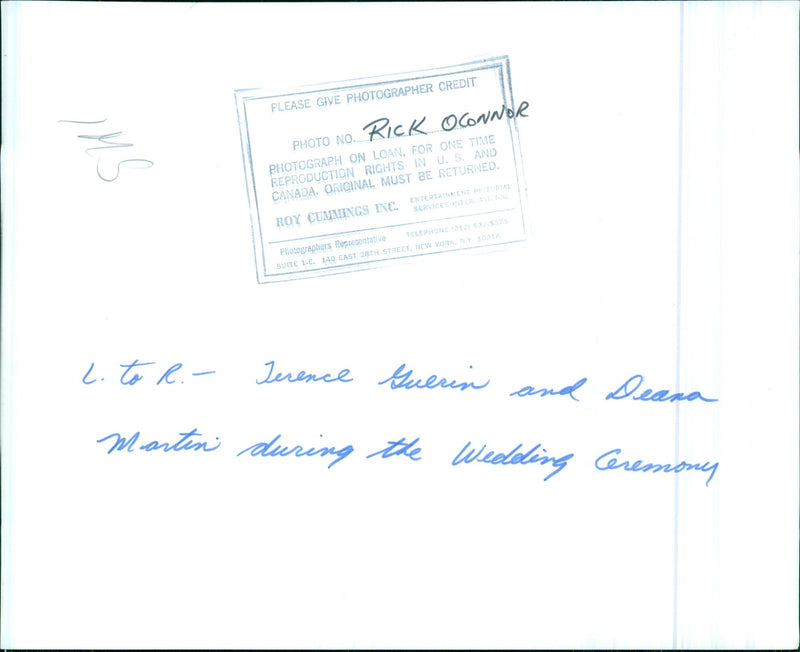 PLEASE GIVE PHOTOGRAPHER CREDIT
PHOTO NO. RICK OCONNOR
PHOTOGRAPH ON LOAN, FOR ONE TIME
REPRODUCTION RIGHTS IN U. S. AND
CANADA. ORIGINAL MUST BE RETURNED.
ROY CUMMINGS INC. ENTERTAINMENT PICTORIAL
SERVICES INTERNATIONAL
Photographers Representative TELEPHONE (212)
SUITE 1-E, 140 EAST 28TH STREET, NEW YORK, N.Y. 10016
L. to R. - Terence Guerin and Deana
Martin during the Wedding Ceremony